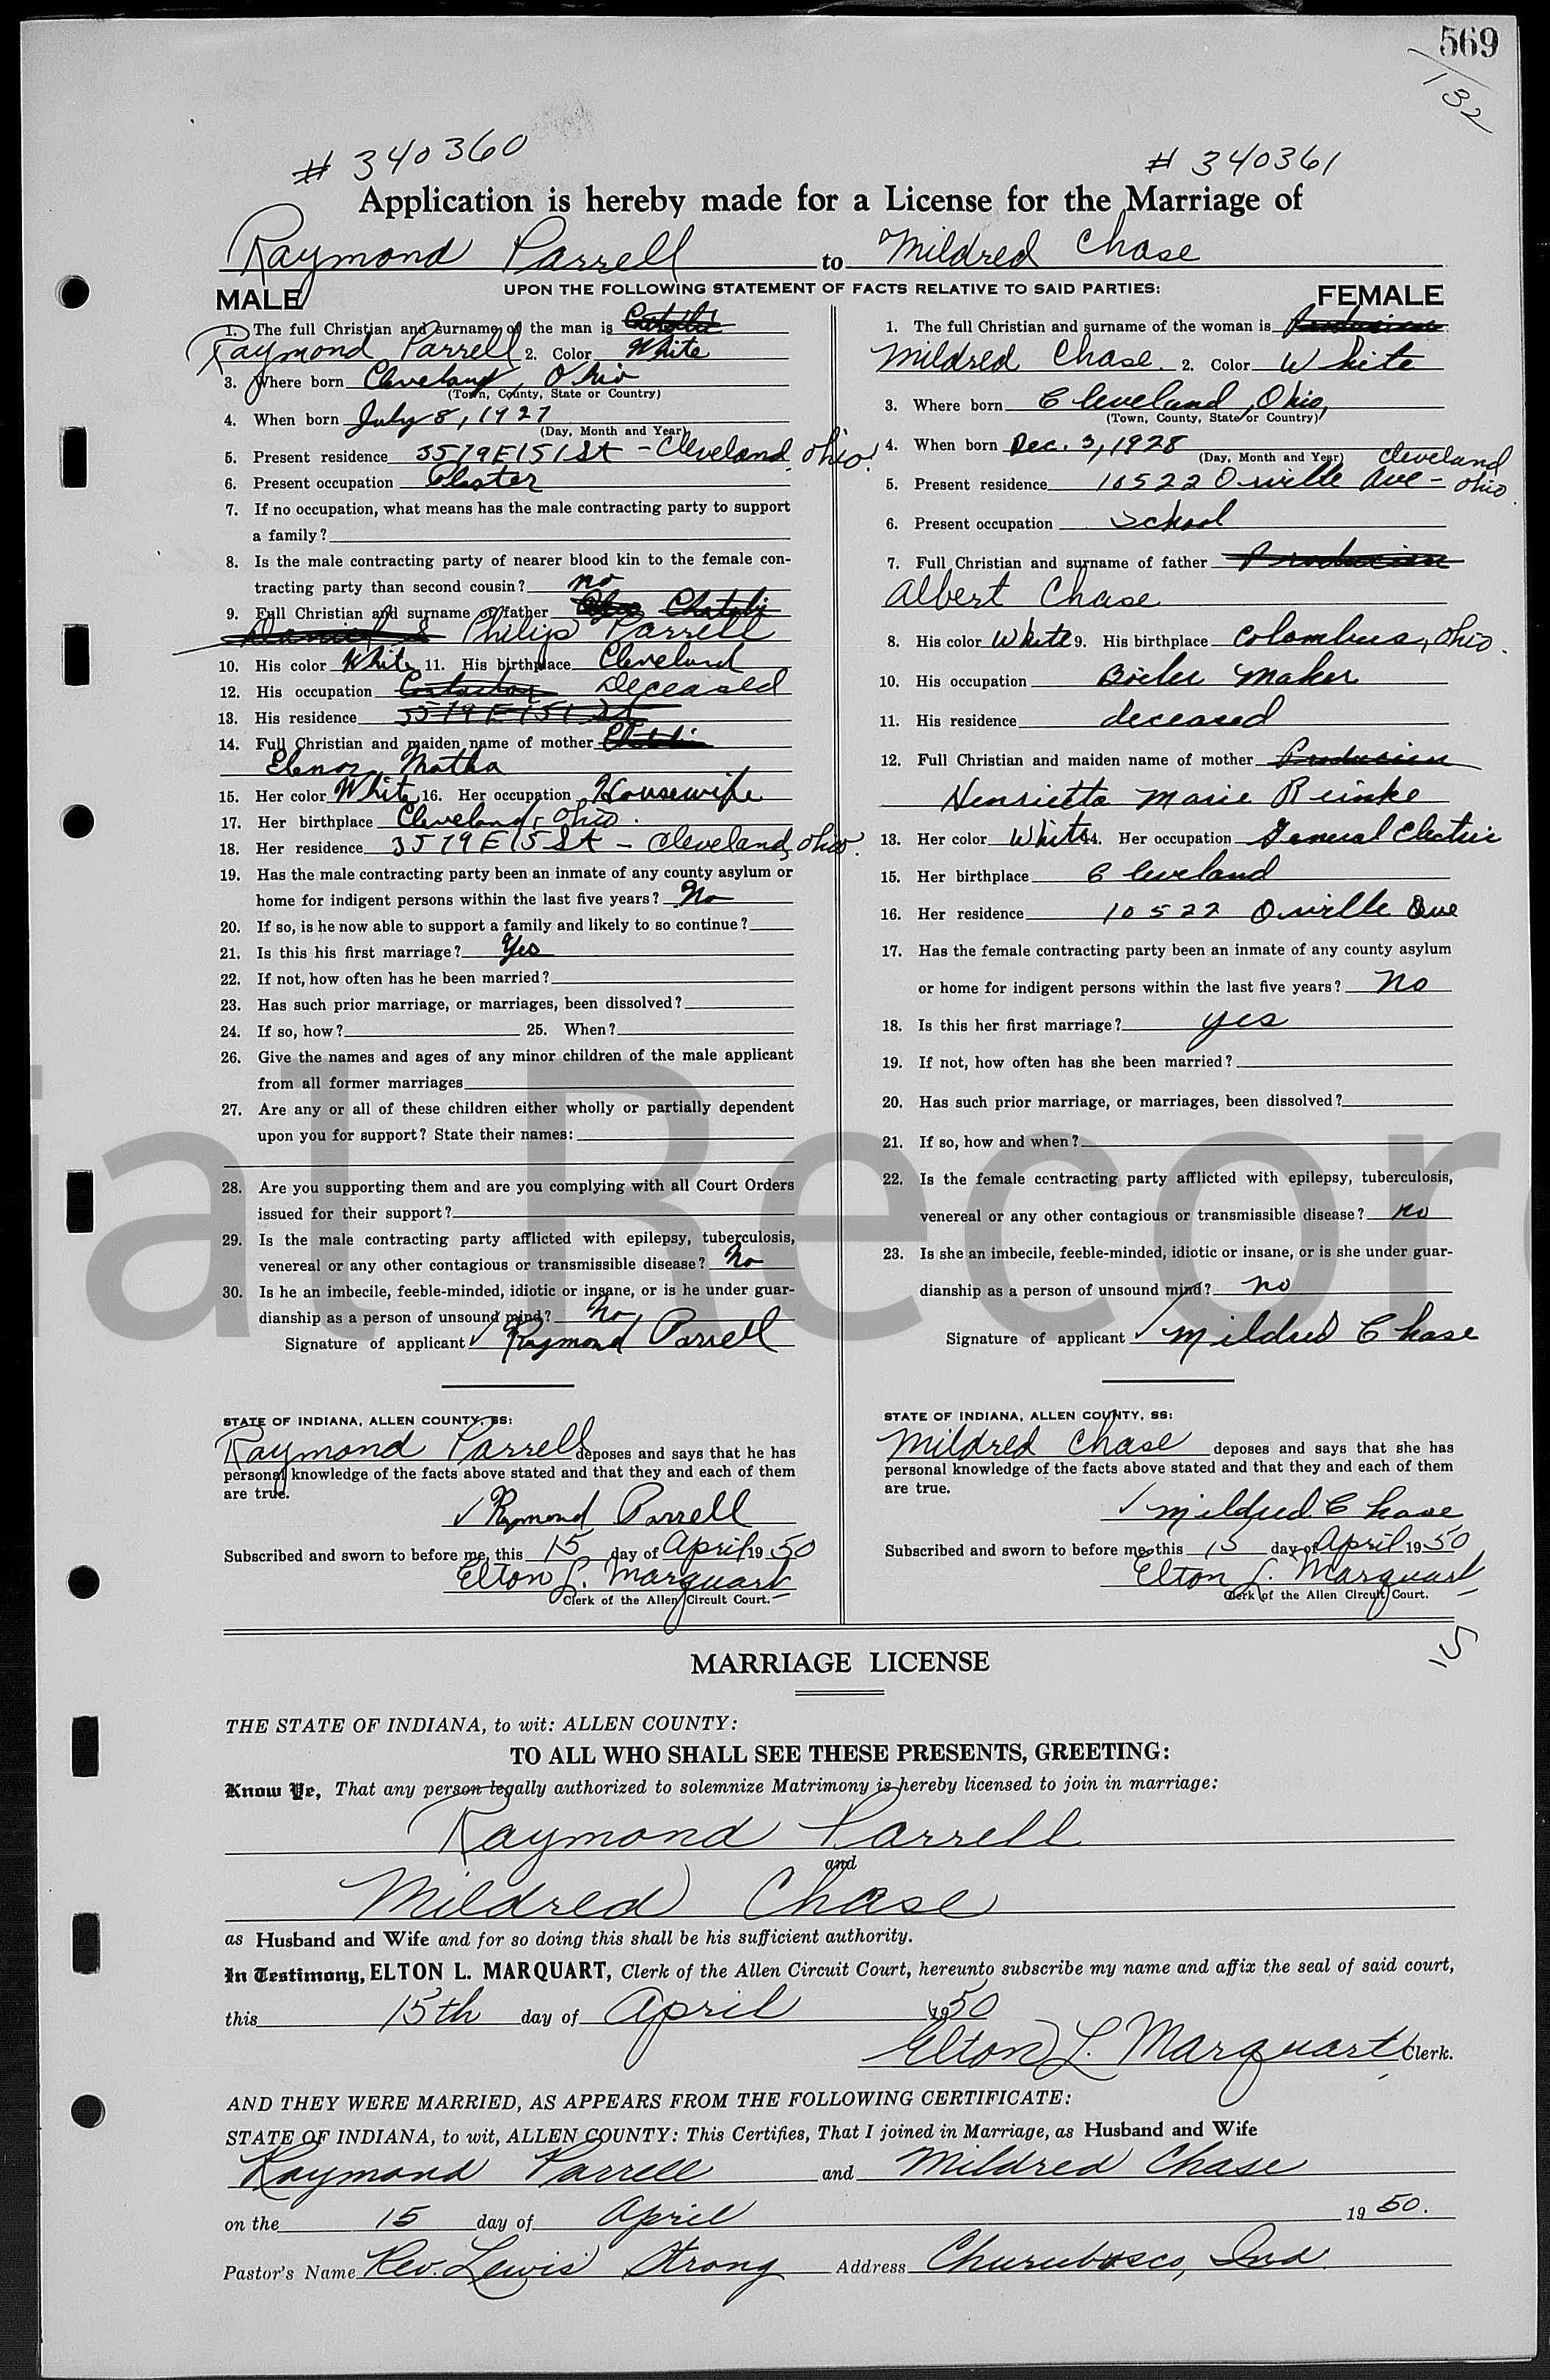 569
132
# 340360
# 340361
Application is hereby made for a License for the Marriage of
Raymond Parrell to Mildred Chase
UPON THE FOLLOWING STATEMENT OF FACTS RELATIVE TO SAID PARTIES:
MALE
1. The full Christian and surname of the man is
Raymond Parrell 2. Color White
3. Where born Cleveland, Ohio
(Town, County, State or Country)
4. When born July 8, 1927
(Day, Month and Year)
5. Present residence 3579 E 151 St - Cleveland, Ohio.
6. Present occupation
7. If no occupation, what means has the male contracting party to support
a family?
8. Is the male contracting party of nearer blood kin to the female con-
tracting party than second cousin? no
9. Full Christian and surname of father
Philip Parrell
10. His color White 11. His birthplace Cleveland
12. His occupation Deceased
13. His residence 3579 E 151 St
14. Full Christian and maiden name of mother
Elenor Motha
15. Her color White 16. Her occupation Housewife
17. Her birthplace Cleveland, Ohio.
18. Her residence 3579 E 15 St - Cleveland, Ohio.
19. Has the male contracting party been an inmate of any county asylum or
home for indigent persons within the last five years? No
20. If so, is he now able to support a family and likely to so continue?
21. Is this his first marriage? Yes
22. If not, how often has he been married?
23. Has such prior marriage, or marriages, been dissolved?
24. If so, how? 25. When?
26. Give the names and ages of any minor children of the male applicant
from all former marriages
27. Are any or all of these children either wholly or partially dependent
upon you for support? State their names:
28. Are you supporting them and are you complying with all Court Orders
issued for their support?
29. Is the male contracting party afflicted with epilepsy, tuberculosis,
venereal or any other contagious or transmissible disease? No
30. Is he an imbecile, feeble-minded, idiotic or insane, or is he under guar-
dianship as a person of unsound mind? No
Signature of applicant Raymond Parrell
STATE OF INDIANA, ALLEN COUNTY, SS:
Raymond Parrell deposes and says that he has
personal knowledge of the facts above stated and that they and each of them
are true.
Raymond Parrell
Subscribed and sworn to before me, this 15 day of April 1950
Elton L. Marquart
Clerk of the Allen Circuit Court.
FEMALE
1. The full Christian and surname of the woman is
Mildred Chase. 2. Color White
3. Where born Cleveland, Ohio,
(Town, County, State or Country)
4. When born Dec. 3, 1928
(Day, Month and Year)
5. Present residence 10522 Orville Ave - Cleveland Ohio.
6. Present occupation School
7. Full Christian and surname of father
Albert Chase
8. His color White 9. His birthplace Colombus, Ohio.
10. His occupation Boiler Maker
11. His residence deceased
12. Full Christian and maiden name of mother
Henrietta Marie Reinke
13. Her color White 14. Her occupation General Electric
15. Her birthplace Cleveland
16. Her residence 10522 Orville Ave
17. Has the female contracting party been an inmate of any county asylum
or home for indigent persons within the last five years? No
18. Is this her first marriage? yes
19. If not, how often has she been married?
20. Has such prior marriage, or marriages, been dissolved?
21. If so, how and when?
22. Is the female contracting party afflicted with epilepsy, tuberculosis,
venereal or any other contagious or transmissible disease? no
23. Is she an imbecile, feeble-minded, idiotic or insane, or is she under guar-
dianship as a person of unsound mind? no
Signature of applicant Mildred Chase
STATE OF INDIANA, ALLEN COUNTY, SS:
Mildred Chase deposes and says that she has
personal knowledge of the facts above stated and that they and each of them
are true.
Mildred Chase
Subscribed and sworn to before me this 15 day of April 1950
Elton L. Marquart
Clerk of the Allen Circuit Court.
15
MARRIAGE LICENSE
THE STATE OF INDIANA, to wit: ALLEN COUNTY:
TO ALL WHO SHALL SEE THESE PRESENTS, GREETING:
Know Ye, That any person legally authorized to solemnize Matrimony is hereby licensed to join in marriage:
Raymond Parrell
and
Mildred Chase
as Husband and Wife and for so doing this shall be his sufficient authority.
In Testimony, ELTON L. MARQUART, Clerk of the Allen Circuit Court, hereunto subscribe my name and affix the seal of said court,
this 15th day of April 1950
Elton L. Marquart Clerk.
AND THEY WERE MARRIED, AS APPEARS FROM THE FOLLOWING CERTIFICATE:
STATE OF INDIANA, to wit, ALLEN COUNTY: This Certifies, That I joined in Marriage, as Husband and Wife
Raymond Parrell and Mildred Chase
on the 15 day of April 1950.
Pastor's Name Rev. Lewis Strong Address Churubusco, Ind.
ial Recor